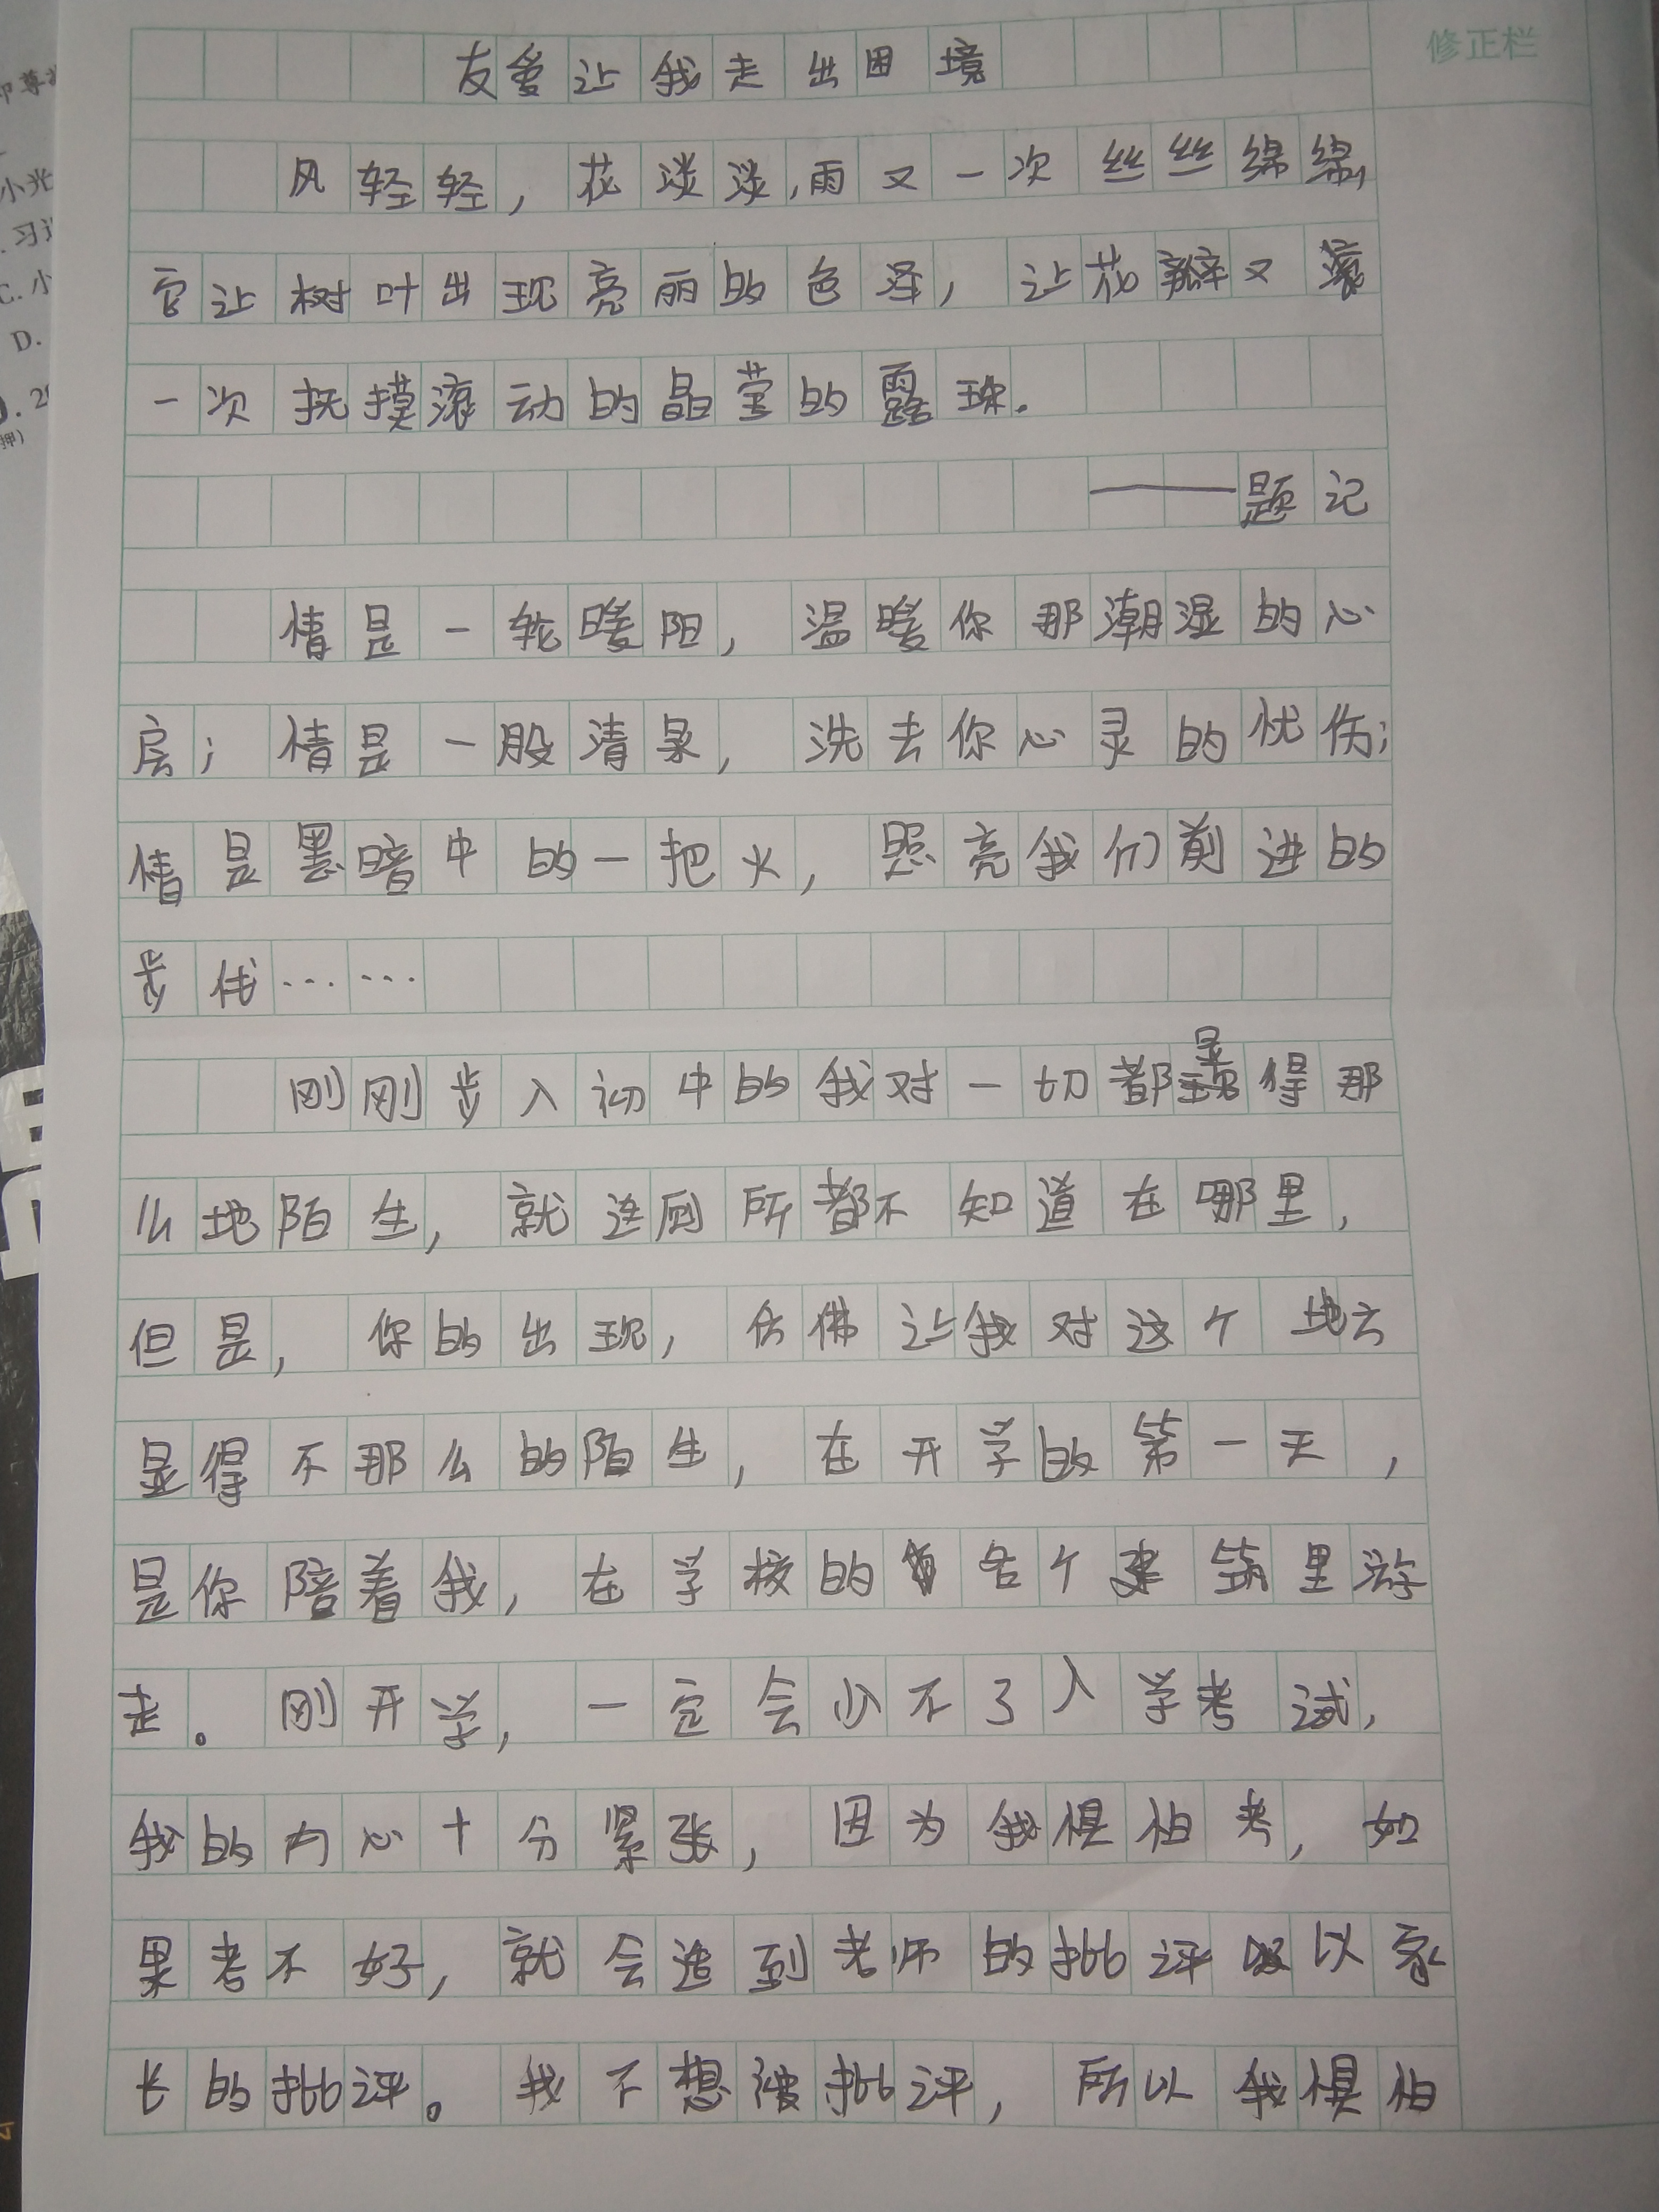 友爱让我走出困境
修正栏
风轻轻，花淡淡，雨又一次丝丝绵绵，
它让树叶出现亮丽的色泽，让花瓣又
一次抚摸滚动的晶莹的露珠。
——题记
情是一轮暖阳，温暖你那潮湿的心
房；情是一股清泉，洗去你心灵的忧伤；
情是黑暗中的一把火，照亮我们前进的
步伐……
刚刚步入初中的我对一切都显得那
么地陌生，就连厕所都不知道在哪里，
但是，你的出现，仿佛让我对这个地方
显得不那么的陌生，在开学的第一天，
是你陪着我，在学校的各个建筑里游
走。刚开学，一定会少不了入学考试，
我的内心十分紧张，因为我惧怕考，如
果考不好，就会遭到老师的批评以家
长的批评。我不想被批评，所以我惧怕
小光
C.小
D.